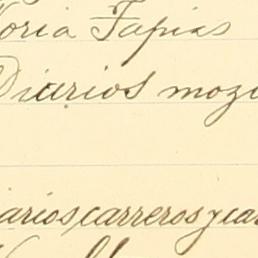 oria Tapias
Diarios mozo
arios, carreros y car